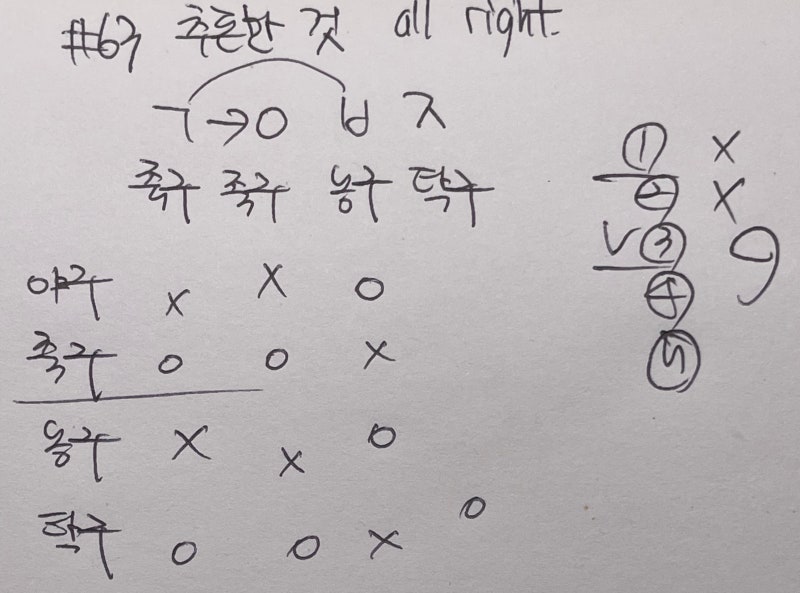 #63 추론한 것 all right.
ㄱ→0 ㅂ ㅈ
축구 족구 농구 탁구
야구 x x o
족구 o o x
농구 x x o
탁구 o o x o
① x
② x
v ③
④
⑤